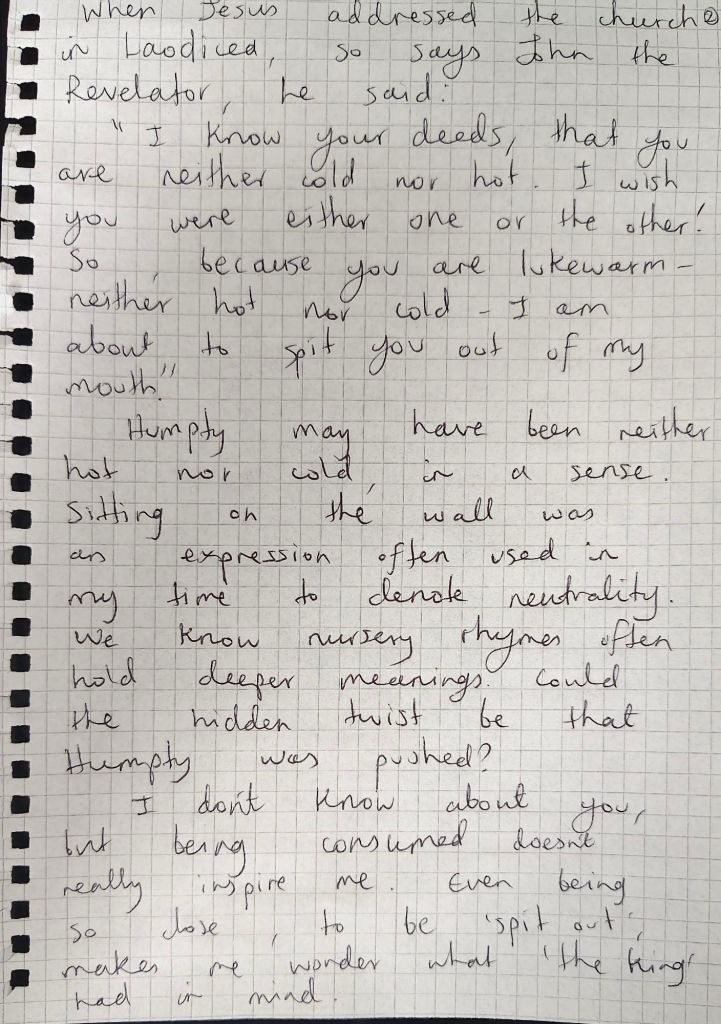 When Jesus addressed the church ②
in Laodicea, so says John the
Revelator, he said:
" I know your deeds, that you
are neither cold nor hot. I wish
you were either one or the other!
So, because you are lukewarm -
neither hot nor cold - I am
about to spit you out of my
mouth."
Humpty may have been neither
hot nor cold, in a sense.
Sitting on the wall was
an expression often used in
my time to denote neutrality.
We know nursery rhymes often
hold deeper meanings. Could
the hidden twist be that
Humpty was pushed?
I don't know about you,
but being consumed doesn't
really inspire me. Even being
so close, to be 'spit out',
makes me wonder what 'the king'
had in mind.